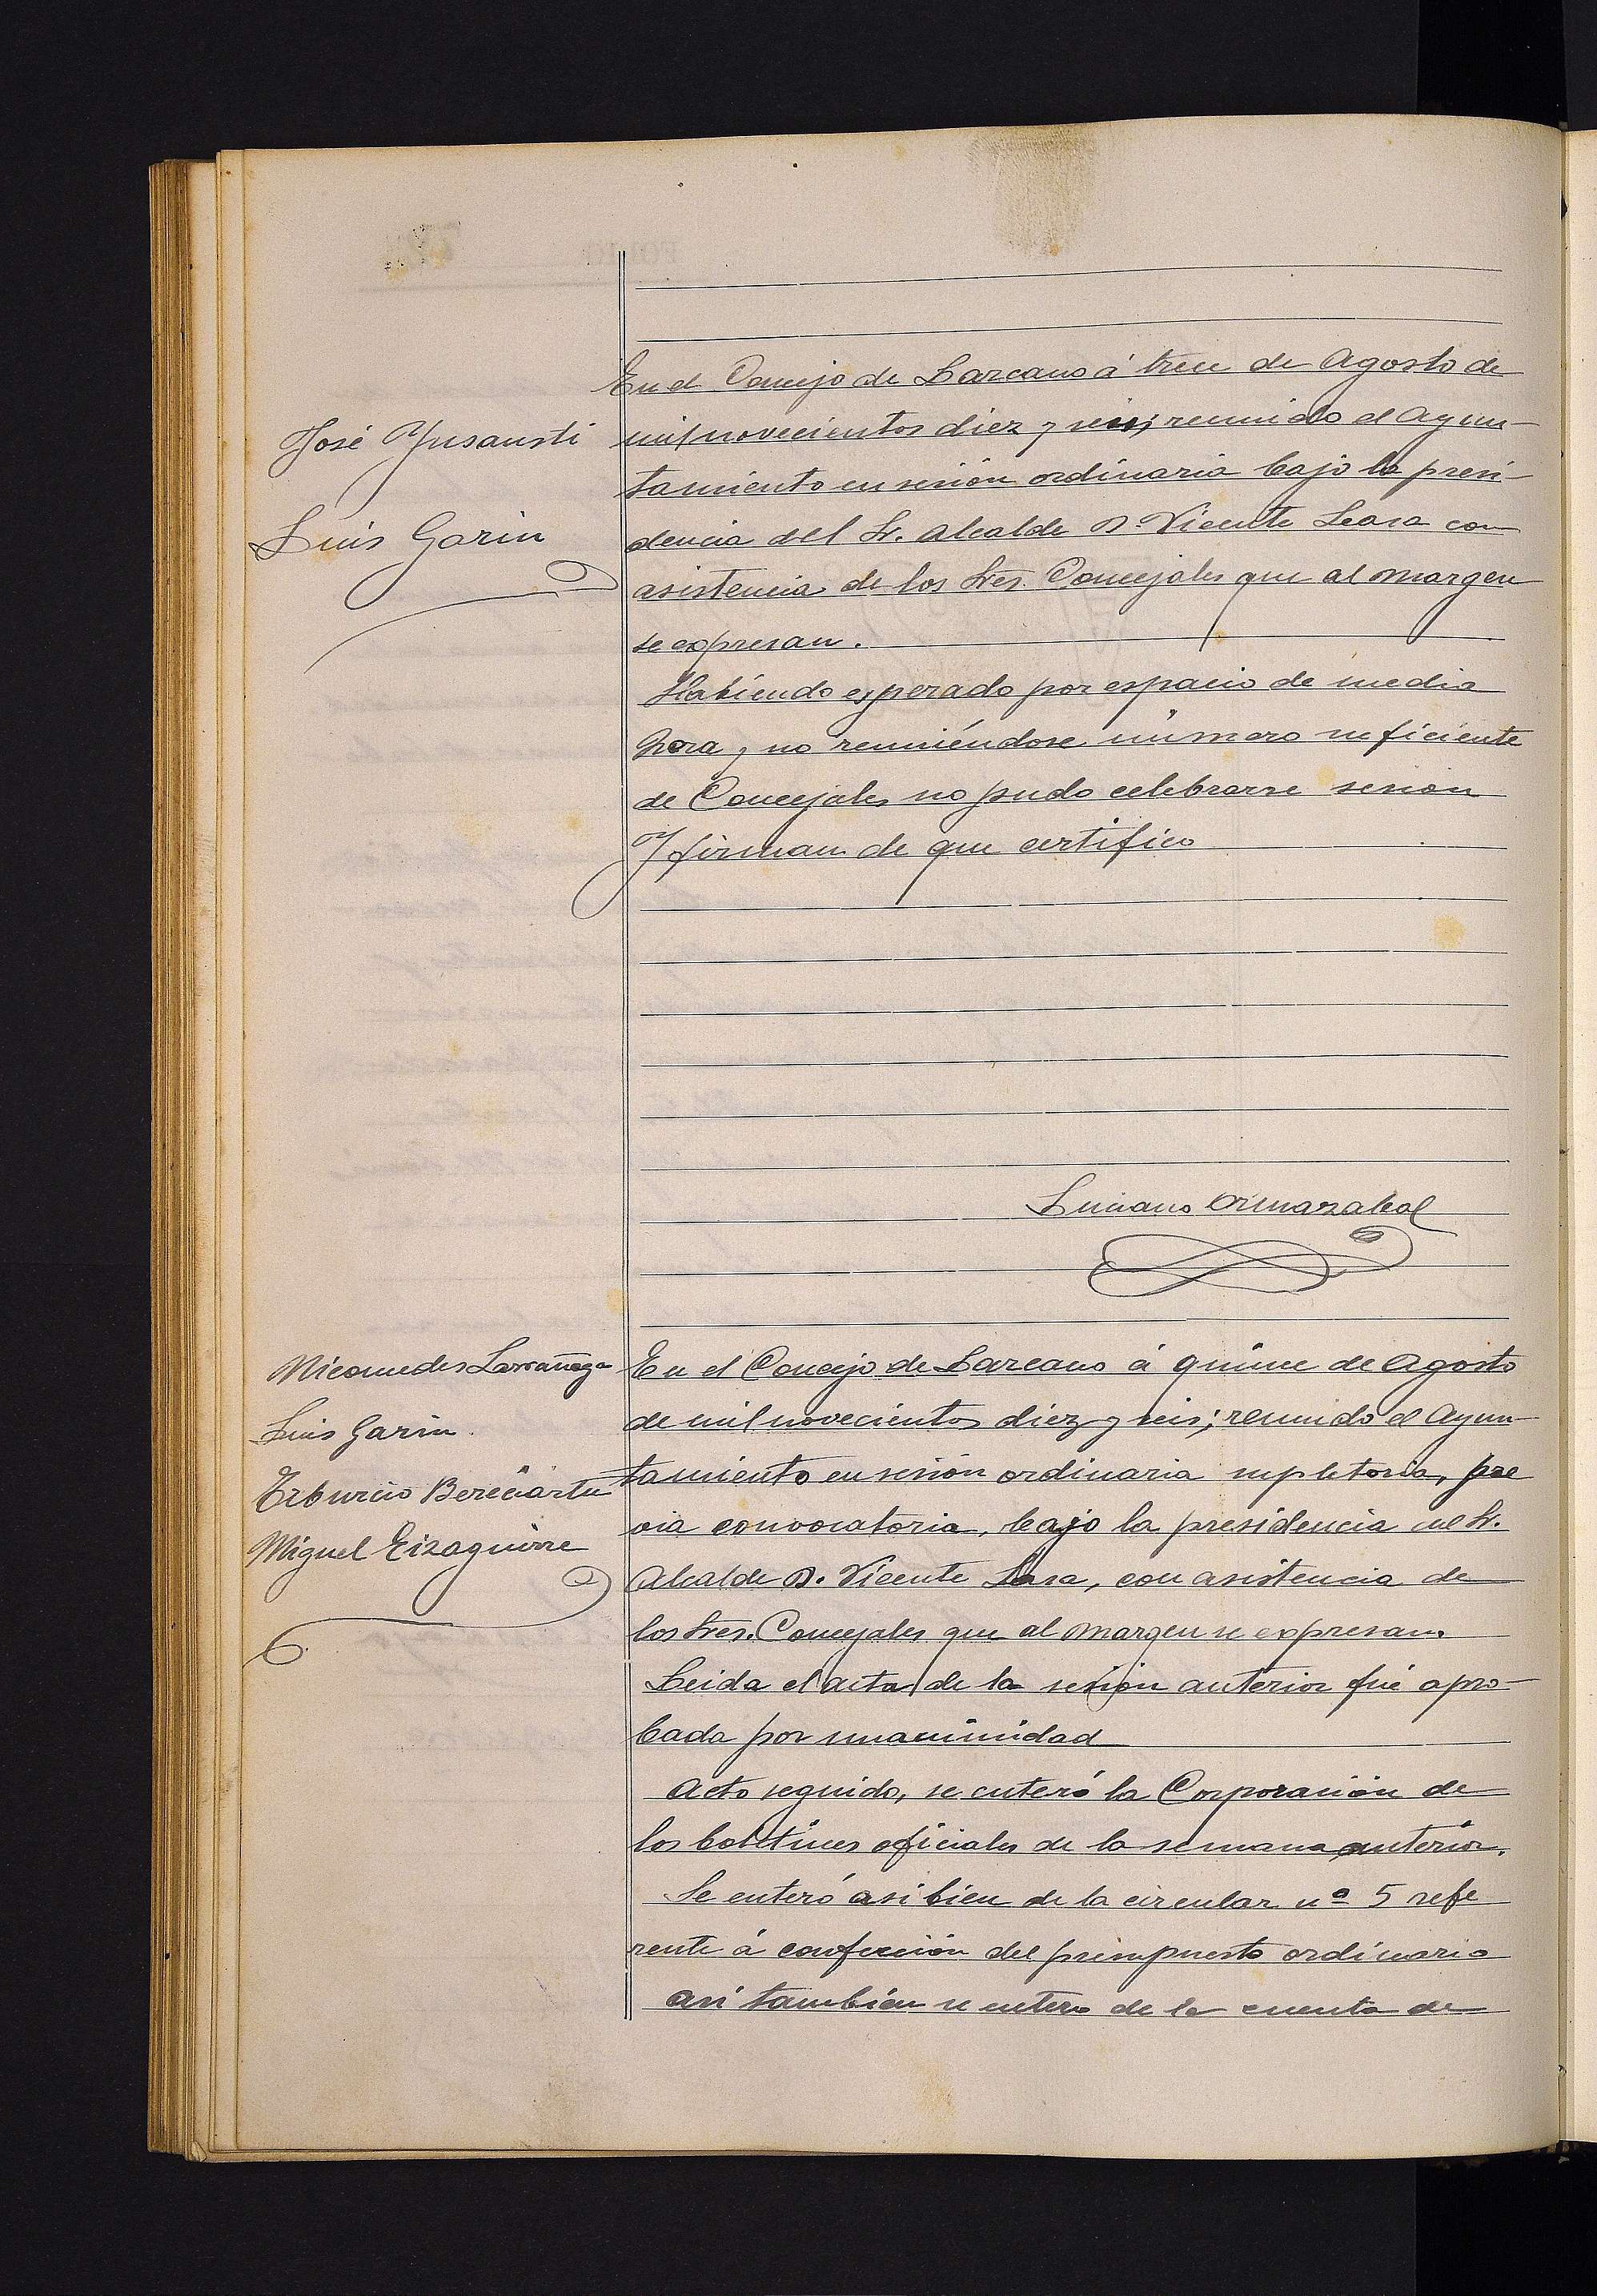 José Ynsausti
Luis Garin
En el Concejo de Lazcano á trece de Agosto de
mil novecientos diez y seis; reunido el Ayun-
tamiento en sesión ordinaria bajo la presi-
dencia del Sr. Alcalde D. Vicente Lasa con
asistencia de los Sres. Concejales que al margen
se expresan.
Habiendo esperado por espacio de media
hora y no reuniéndose número suficiente
de Concejales no pudo celebrarse sesión
Y firman de que certifico
Luciano Ormazabal
Nicomedes Larrañaga
Luis Garin
Tiburcio Bereciartu
Miguel Eizaguirre
En el Concejo de Lazcano á quince de Agosto
de mil novecientos diez y seis; reunido el Ayun-
tamiento en sesión ordinaria supletoria, pre
via convocatoria, bajo la presidencia del Sr.
Alcalde D. Vicente Lasa, con asistencia de
los Sres. Concejales que al margen se expresan.
Leida el acta de la sesión anterior fué apro-
bada por unanimidad
Acto seguido, se enteró la Corporación de
los boletines oficiales de la semana anterior.
Se enteró asi bien de la circular nº 5 refe
rente á confección del presupuesto ordinario
Asi también se entero de la cuenta de